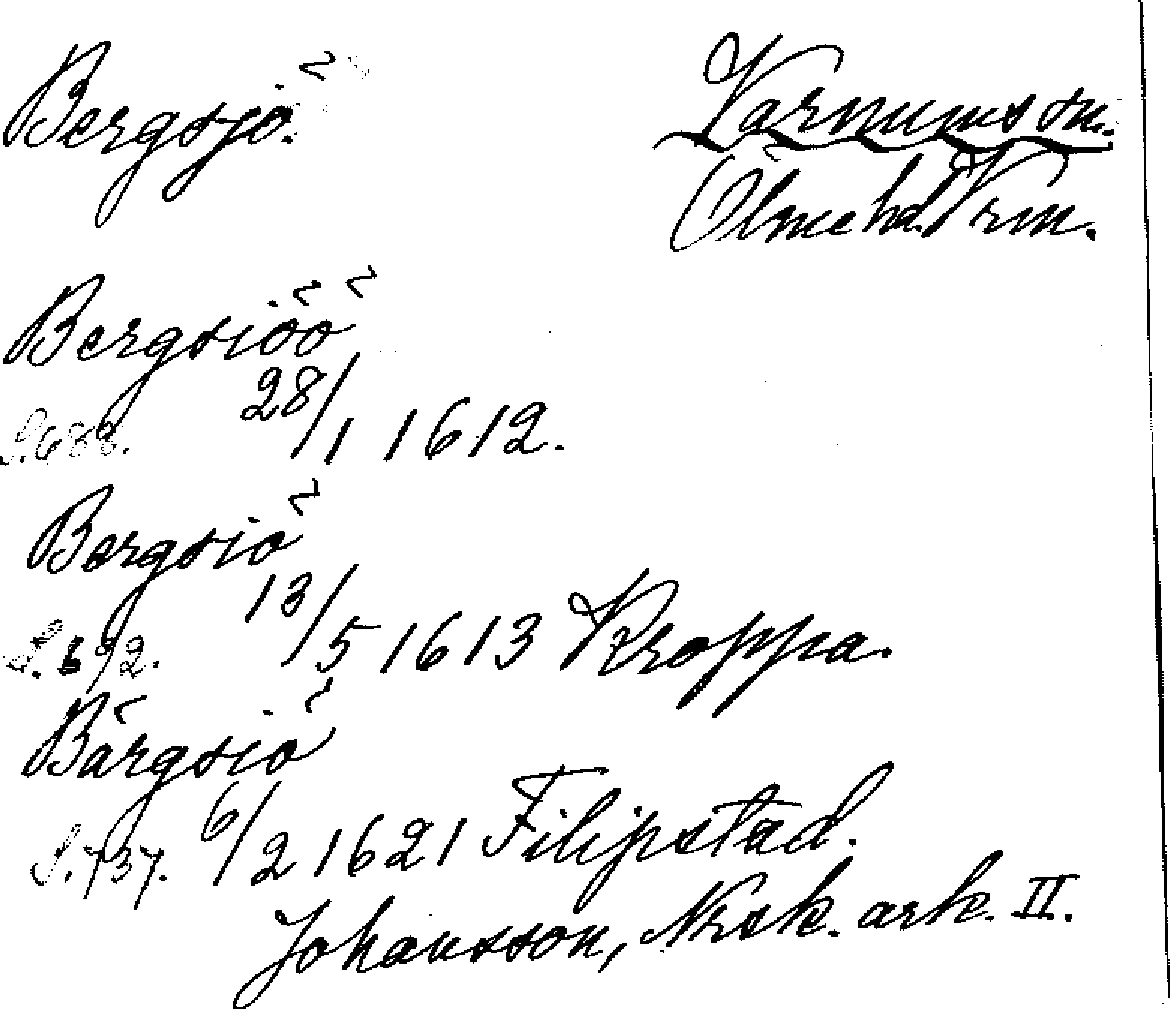 Bergsjö. Varnums sn.
Ölme hd. Vrm.
Bergsiöö
S. 688. 28/1 1612.
Bergsiö
S. 692. 13/5 1613 Kroppa.
Bärgsiö
S. 737. 6/2 1621 Filipstad.
Johansson, Nrsk. ark. II.